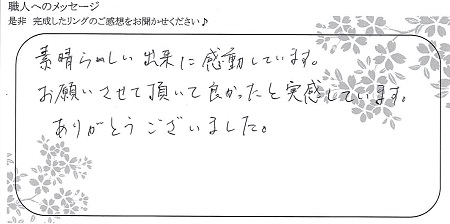 職人へのメッセージ
是非 完成したリングのご感想をお聞かせください♪
素晴らしい出来に感動しています。
お願いさせて頂いて良かったと実感しています。
ありがとうございました。